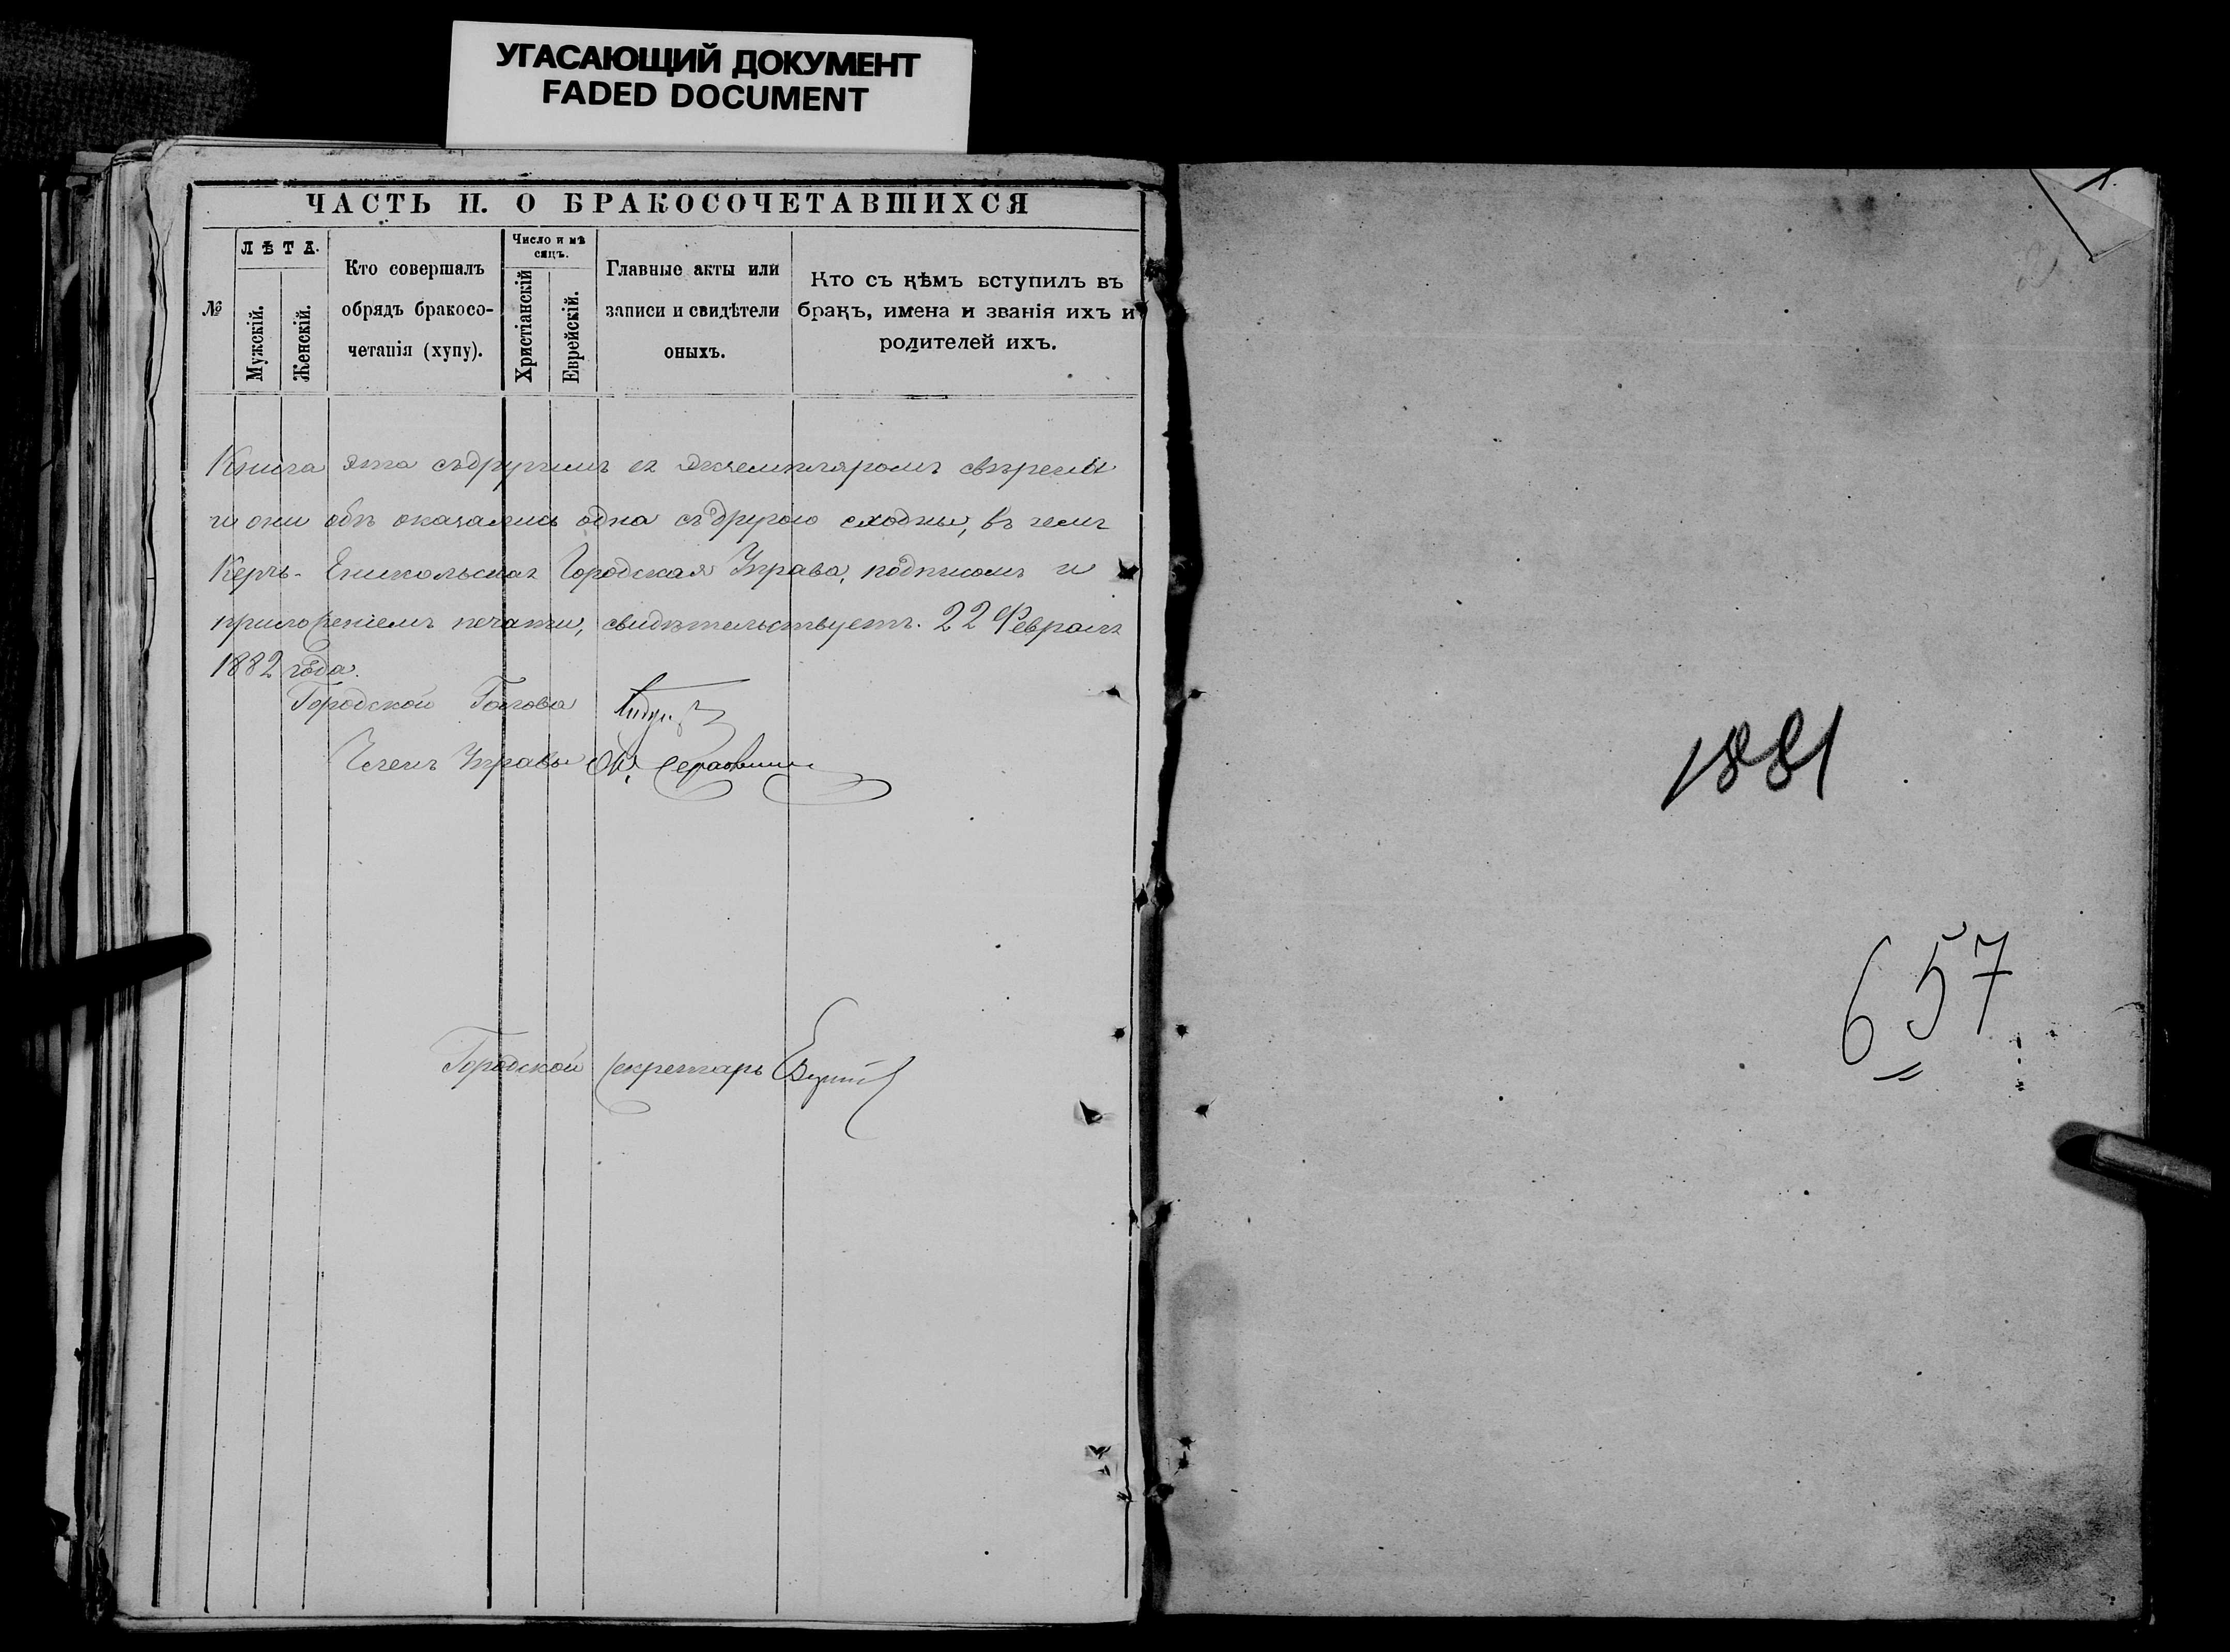 УГАСАЮЩИЙ ДОКУМЕНТ
FADED DOCUMENT
ЧАСТЬ II. О БРАКОСОЧЕТАВШИХСЯ
№
ЛѢТА.
Мужскій.
Женскій.
Кто совершалъ
обрядъ бракосо-
четанія (хупу).
Число и мѣ
сяцъ.
Христіанскій
Еврейскій.
Главные акты или
записи и свидѣтели
оныхъ.
Кто съ кѣмъ вступилъ въ
бракъ, имена и званія ихъ и
родителей ихъ.
Книга эта съ другимъ ея экземпляромъ свѣрены
и они обѣ оказались одна съ другою сходны, въ чемъ
Керчь-Еникольская Городская Управа, подписомъ и
приложеніемъ печати, свидѣтельствуетъ. 22 Февраля
1882 года.
Городской Голова
Членъ Управы
Городской Секретарь
1881
657